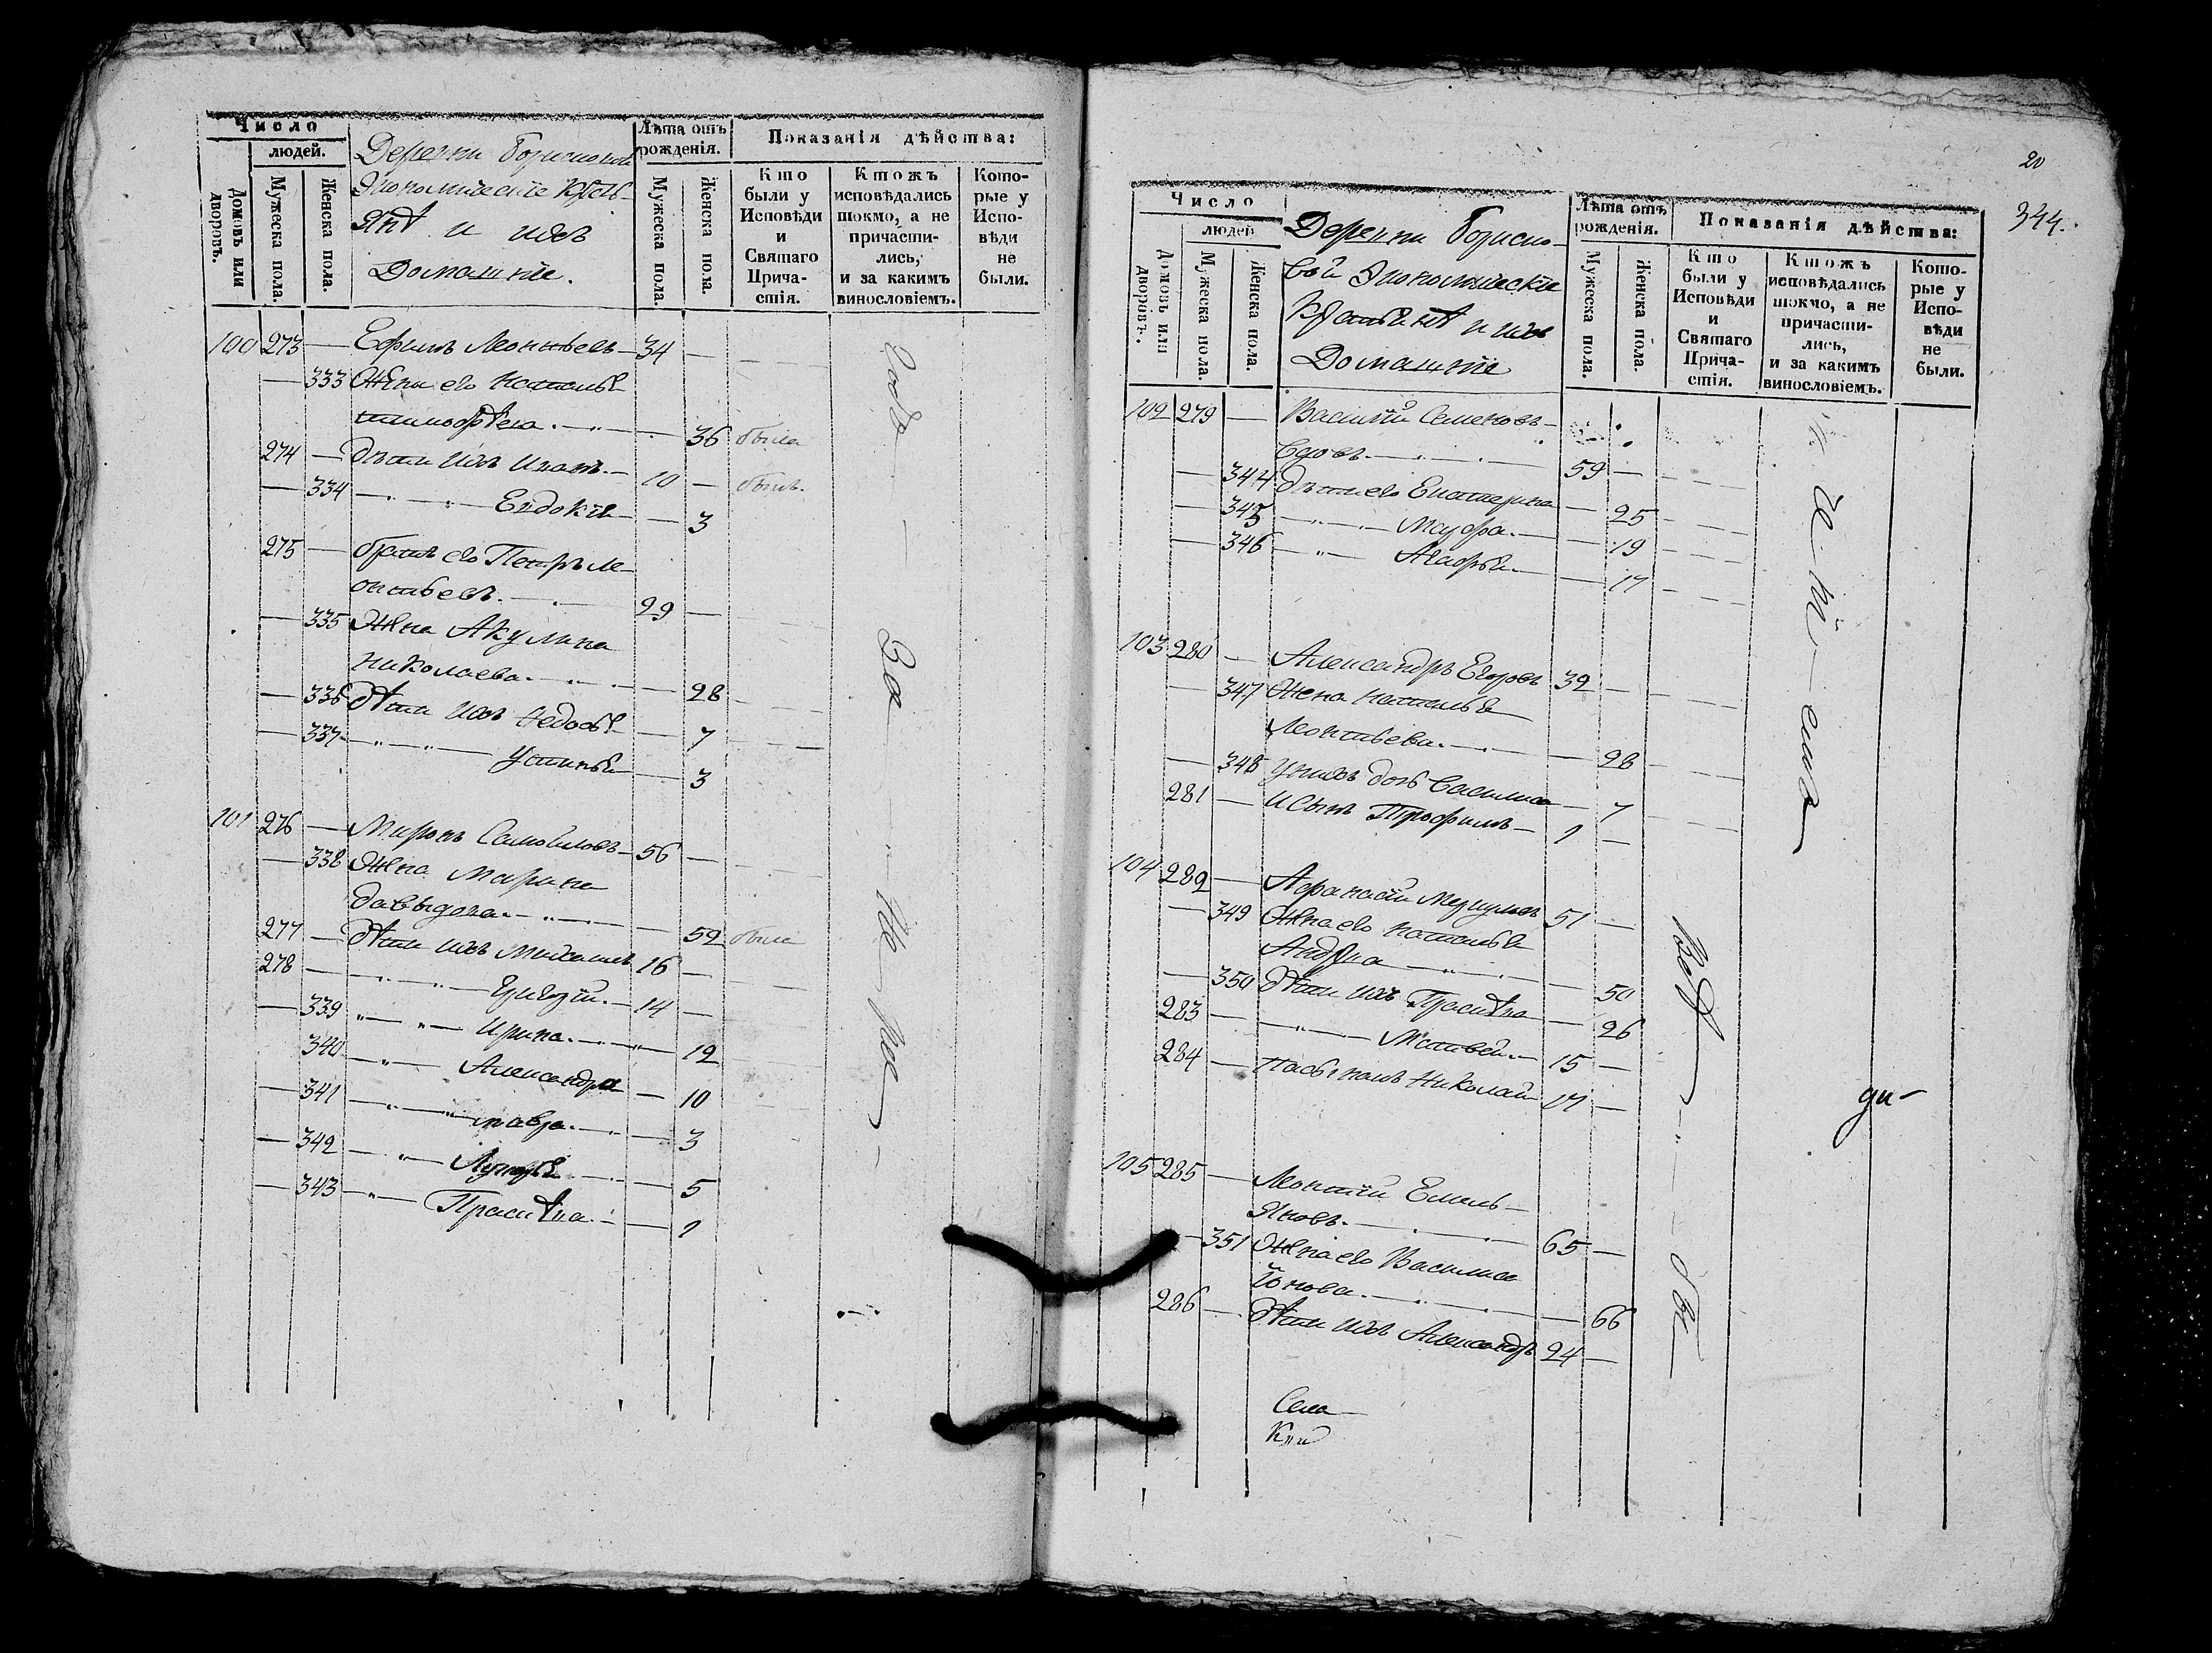 Число
людей.
Домовъ или дворовъ.
Мужеска пола.
Женска пола.
Деревни Борисковой
Экономическіе Кресть-
янѣ и ихъ
Домашніе.
Лѣта отъ рожденія.
Мужеска пола.
Женска пола.
Показанія дѣйства:
Кто были у Исповѣди и Святаго Прича-стія.
Ктожъ исповѣдались токмо, а не причасти-лись, и за какимъ винословіемъ.
Кото-рые у Испо-вѣди не были.
100 273 — Ефимъ Леонтьевъ — 34 —
— 333 Жена его Наталья
Тимофѣева. — 36 была
274 — Дѣти ихъ Иванъ. — 10 — былъ.
— 334 — Евдокія — — 3
275 — братъ его Петръ Ле-
онтьевъ. — 29 —
— 335 Жена Акулина
Николаева. — — 28
— 336 дѣти ихъ Федосья — 7
— 337 — Устинья — 3
101 276 — Миронъ Самойловъ — 56 —
— 338 Жена Марина
Давыдова. — — 52 была
277 — Дѣти ихъ Михаилъ 16 —
278 — Григорій. — 14 —
— 339 — Ирина. — 12
340 — Александра — 10
— 341 — Мавра. — 3
— 342 — Лукерья — 5
— 343 — Прасковья — 1
За
не
20
344.
Число
людей
Домовъ или дворовъ.
Мужеска пола.
Женска пола.
Деревни Бориско-
вой Экономическіе
Крестьянѣ и ихъ
Домашніе
Лѣта отъ рожденія.
Мужеска пола.
Женска пола.
Показанія дѣйства:
Кто были у Исповѣди и Святаго Прича-стія.
Ктожъ исповѣдались токмо, а не причасти-лись, и за какимъ винословіемъ.
Кото-рые у Испо-вѣди не были.
102 279 — Василій Семеновъ
вдовъ. — 59 —
— 344 Дѣти его Екатерина — 25
— 345 — Марфа. — 19
— 346 — Агафья. — 17
103 280 — Александръ Егоровъ 32 —
— 347 Жена Наталья
Леонтьева. — — 28
— 348 У нихъ дочь Василиса — 7
281 — и Сынъ Трофимъ — 1 —
104 282 — Афанасій 51 —
— 349 Жена его Наталья
— 50
— 350 Дѣти ихъ — 26
283 — Матвей. — 15 —
284 — Николай 17 —
105 285 — Леонтій Емель-
яновъ. — 65 —
— 351 Жена его Василиса
Іонова. — — 66
286 — Дѣти ихъ Александръ 24 —
Села